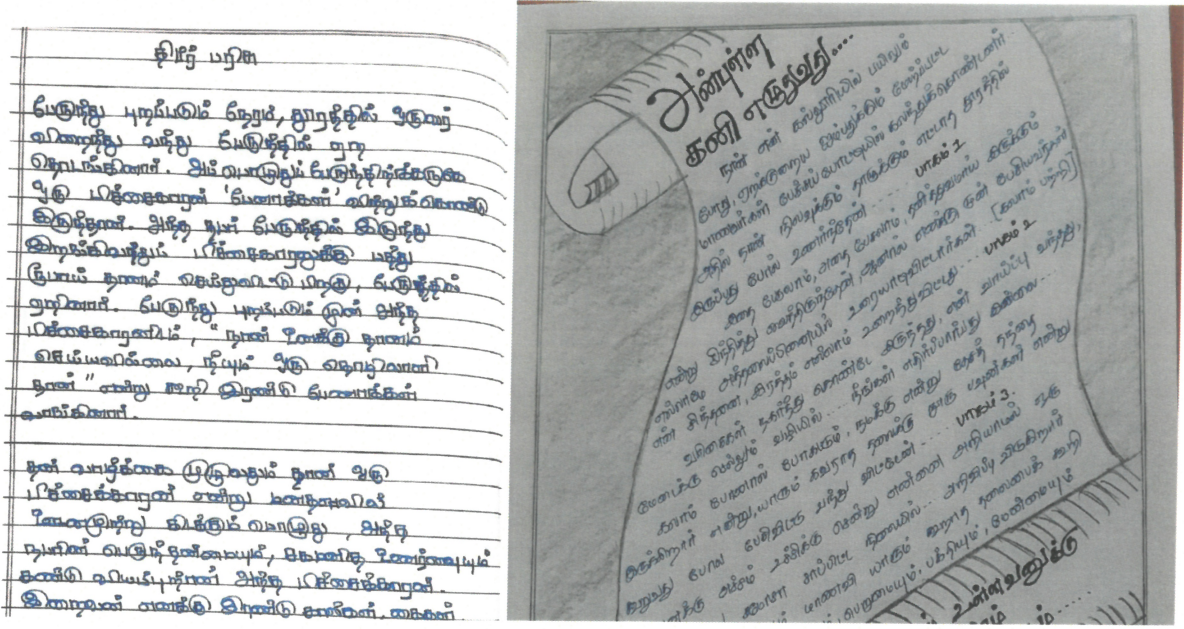 திடீர் பரிசு
பேருந்து புறப்படும் நேரம், தூரத்தில் ஒருவர்
விரைந்து வந்து பேருந்தில் ஏற
தொடங்கினார். அப்பொழுதுப் பேருந்திங்கருகே
ஒரு பிச்சைகாரன் 'பேனாக்கள்' விற்றுக்கொண்டு
இருந்தான். அந்த நபர் பேருந்தில் இருந்து
இறங்கிவந்துப் பிச்சைகாரனுக்கு பத்து
ரூபாய் தானம் செய்துவிட்டு பிறகு, பேருந்தில்
ஏறினார். பேருந்து புறப்படும் முன் அந்த
பிச்சைகாரனிடம், "நான் உனக்கு தானம்
செய்யவில்லை, நீயும் ஒரு தொழிலாளி
தான்" என்று கூறி இரண்டு பேனாக்கள்
வாங்கினார்.
தன் வாழ்க்கை முழுவதும் தான் ஒரு
பிச்சைக்காரன் என்று மனதளவில்
ஊனமுற்று கிடக்கும் பொழுது, அந்த
நபரின் பெருந்தன்மையும், உணர்வையும்
கண்டு வியப்புற்றான் அந்த பிச்சைக்காரன்.
இறைவன் எனக்கு இரண்டு கால்கள், கைகள்
அன்புள்ள
கனி எழுதுவது....
நான் என் கல்லூரியில் பயிலும்
போது, ஏறக்குறைய ஐம்பதுக்கும் மேற்பட்ட
மாணவர்கள் பேச்சுப்போட்டியில் கலந்துக்கொண்டனர்..
அதில் நான் நிலவுக்கும் தூரத்தில்
இருப்பது போல் உணர்ந்தேன்..... பாகம் 1
இதை பேசலாம், அதை பேசலாம், தனித்துவமாய் இருக்கும்
என்று சிந்தித்து வைத்திருந்தேன், ஆனால் எனக்கு முன் பேசியவர்கள்
எல்லாமே உரையாடிவிட்டார்கள் [கலாம் பற்றி]
என் சிந்தனை, இரத்தம் எல்லாம் உறைந்துவிட்டது... பாகம் 2
வரிசைகள் நகர்ந்து கொண்டே இருந்தது, என் வாய்ப்பு வந்தது,
மேடைக்கு செல்லும் வழியில்... நீங்கள் எதிர்பார்ப்பது இல்லை..
கலாம் போனால் போகட்டும், நமக்கு என்று தேசத் தந்தை
இருக்கிறார் என்று, யாரும் கவராத
கூறுவது போல பேசிவிட்டு வந்து விட்டேன்..... பாகம் 3.
சென்று என்னை அறியாமல் ஒரு
சாப்பிட்ட நிலையில்... அறிவிப்பு விடுகிறார்
மாணவி யாரும் கூறாத தலைவைக் கூறி
பெருமையும், பக்தியும், மேன்மையும்
உள்ளவனுக்கு